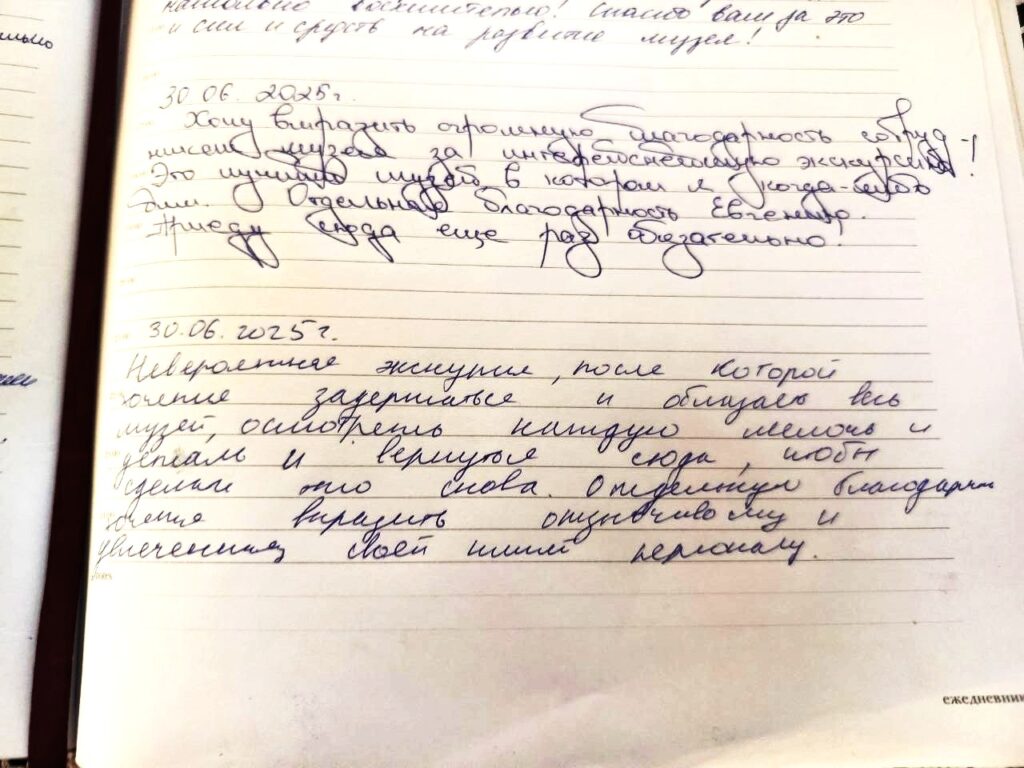 восхитительно! Спасибо вам за это
и сил и средств на развитие музея!
30.06.2025г.
Хочу выразить огромную благодарность сотруд-
никам музея за интереснейшую экскурсию!
Это лучший музей, в котором я когда-либо
был. Отдельная благодарность Евгению.
Приеду сюда еще раз обязательно!
30.06.2025г.
Невероятная экскурсия, после которой
хочется задержаться и облазать весь
музей, осмотреть каждую мелочь и
деталь и вернуться сюда, чтобы
сделать это снова. Отдельную благодарность
хочется выразить отзывчивому и
увлеченному своей персоналу.
ежедневник